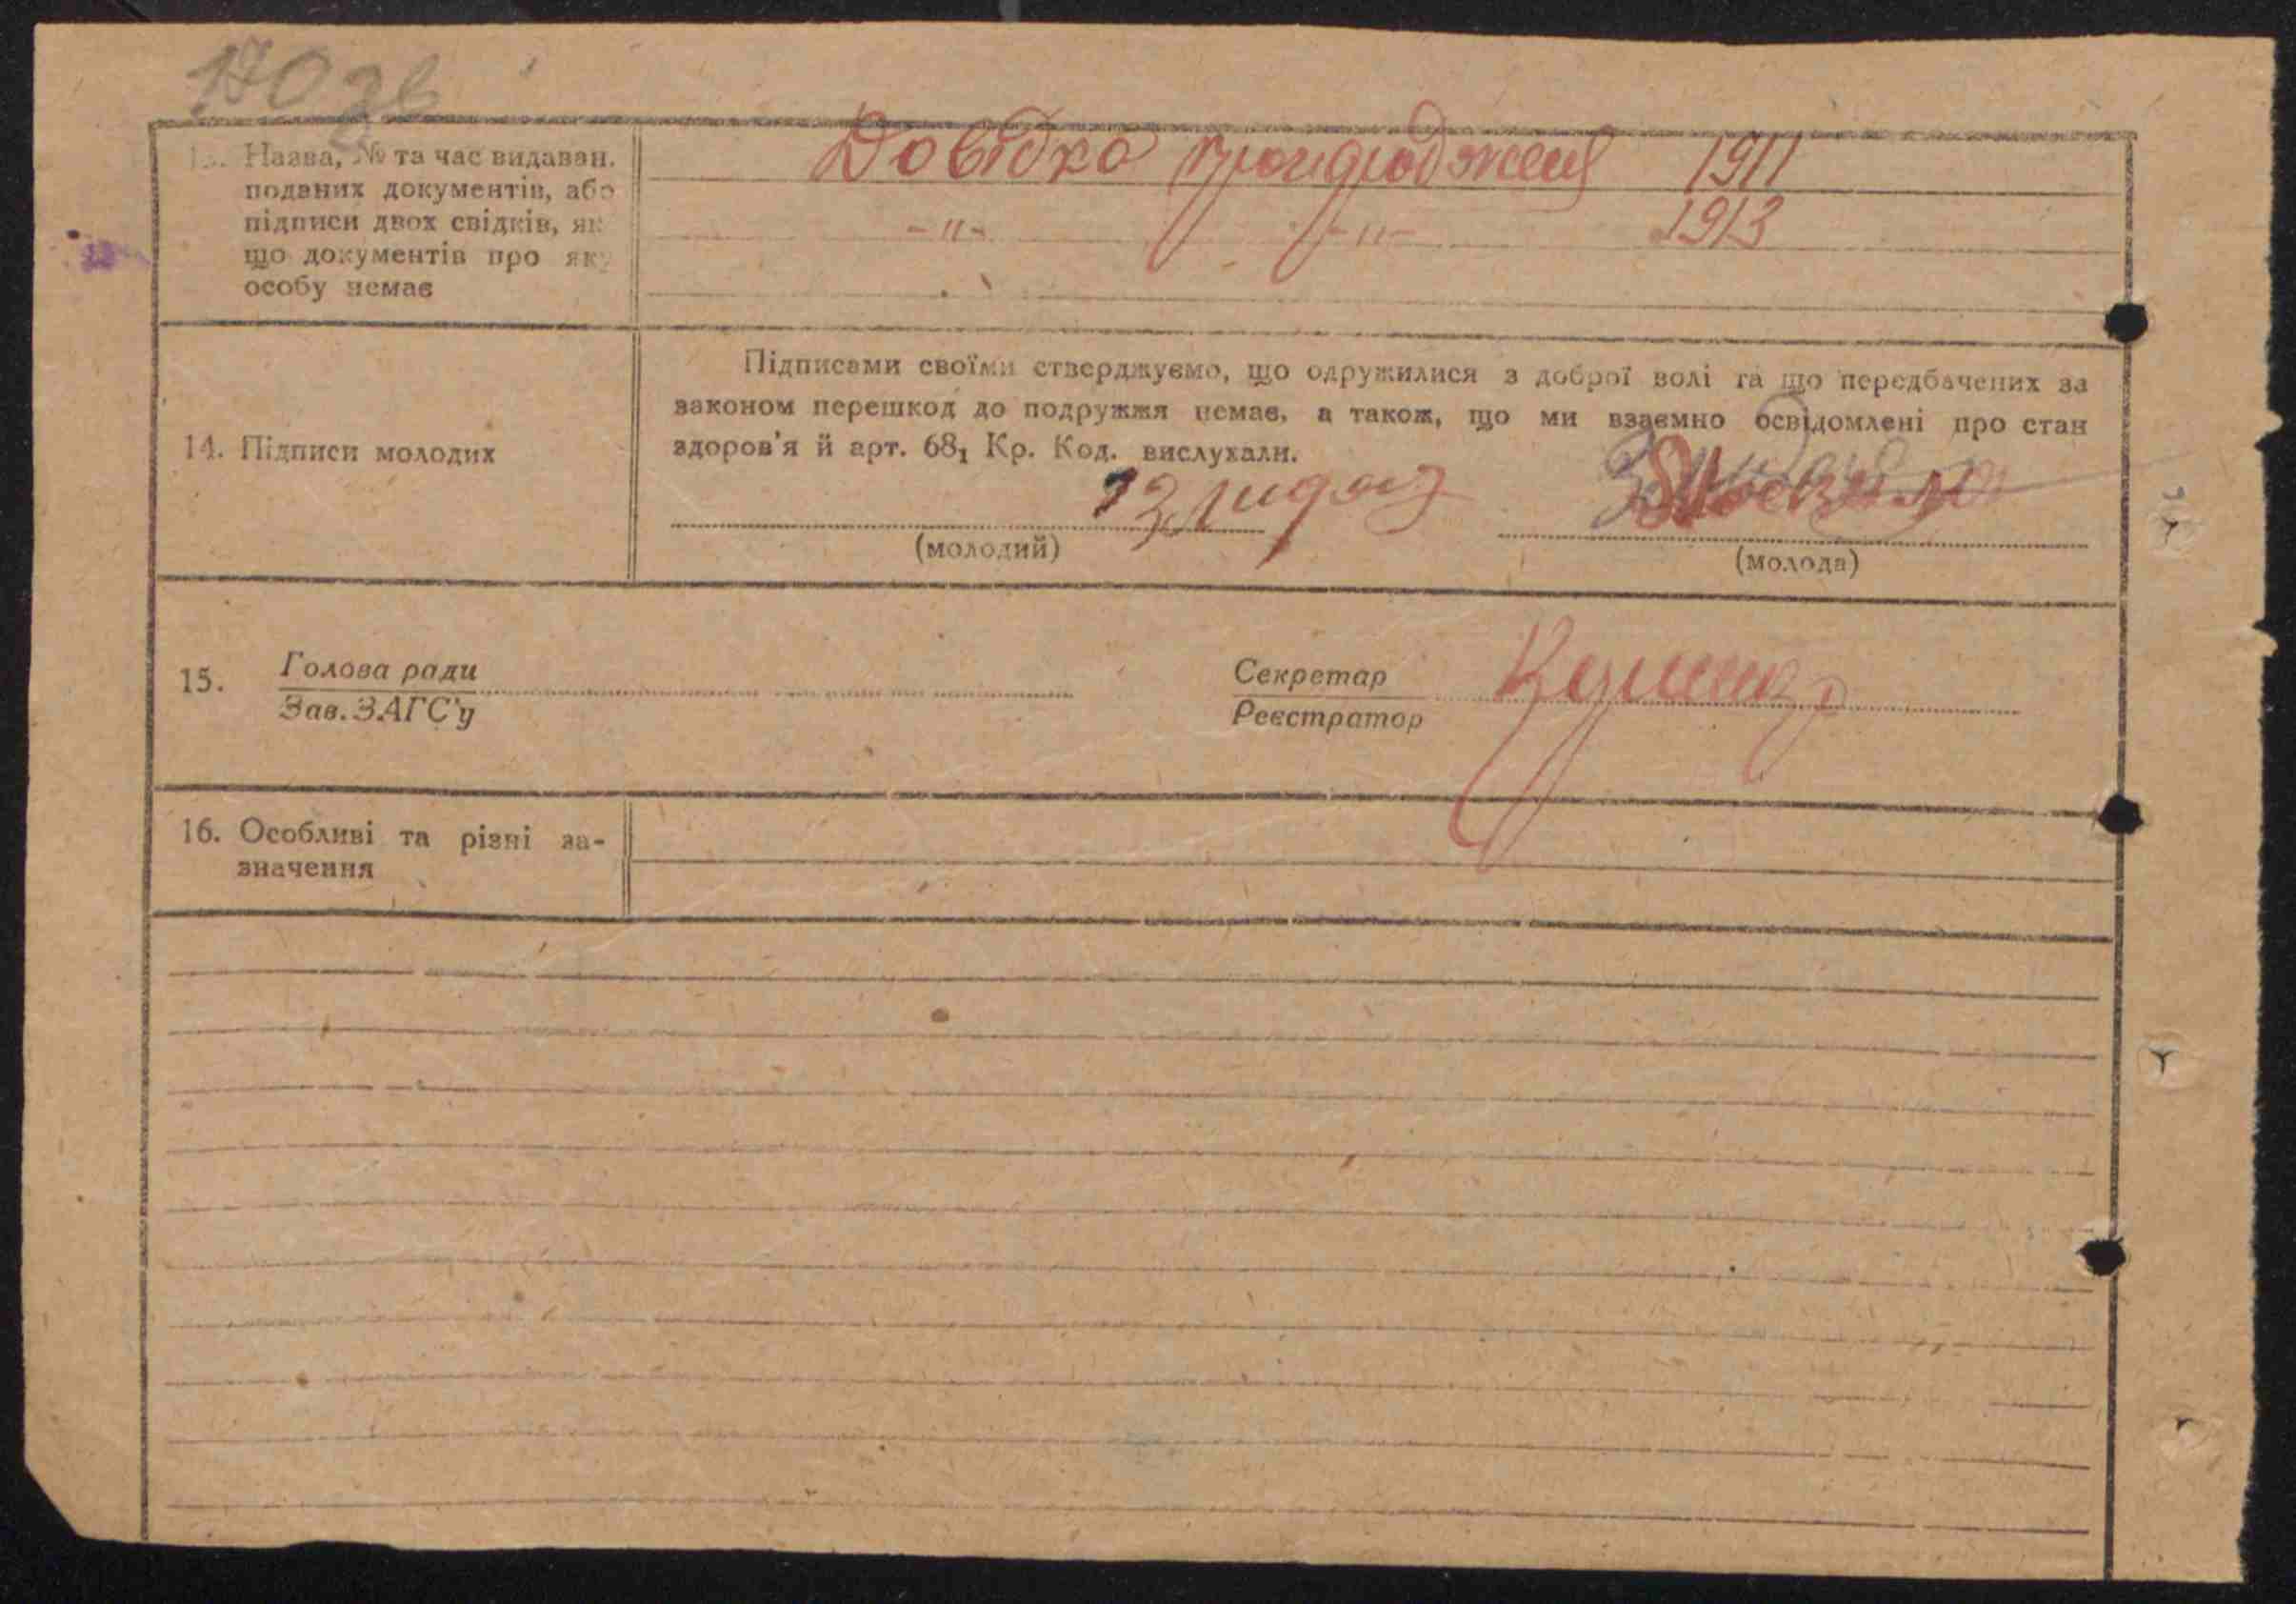 170 зв
13. Назва, № та час видаван.
поданих документів, або
підписи двох свідків, як
що документів про яку
особу немає
Довідка 1911
-"- -"- 1913
14. Підписи молодих
Підписами своїми стверджуємо, що одружилися з доброї волі та що передбачених за
законом перешкод до подружжя немає, а також, що ми взаємно освідомлені про стан
здоров'я й арт. 68₁ Кр. Код. вислухали.
(молодий)
(молода)
15. Голова ради
Зав. ЗАГС'у
Секретар
Реєстратор
16. Особливі та різні за-
значення